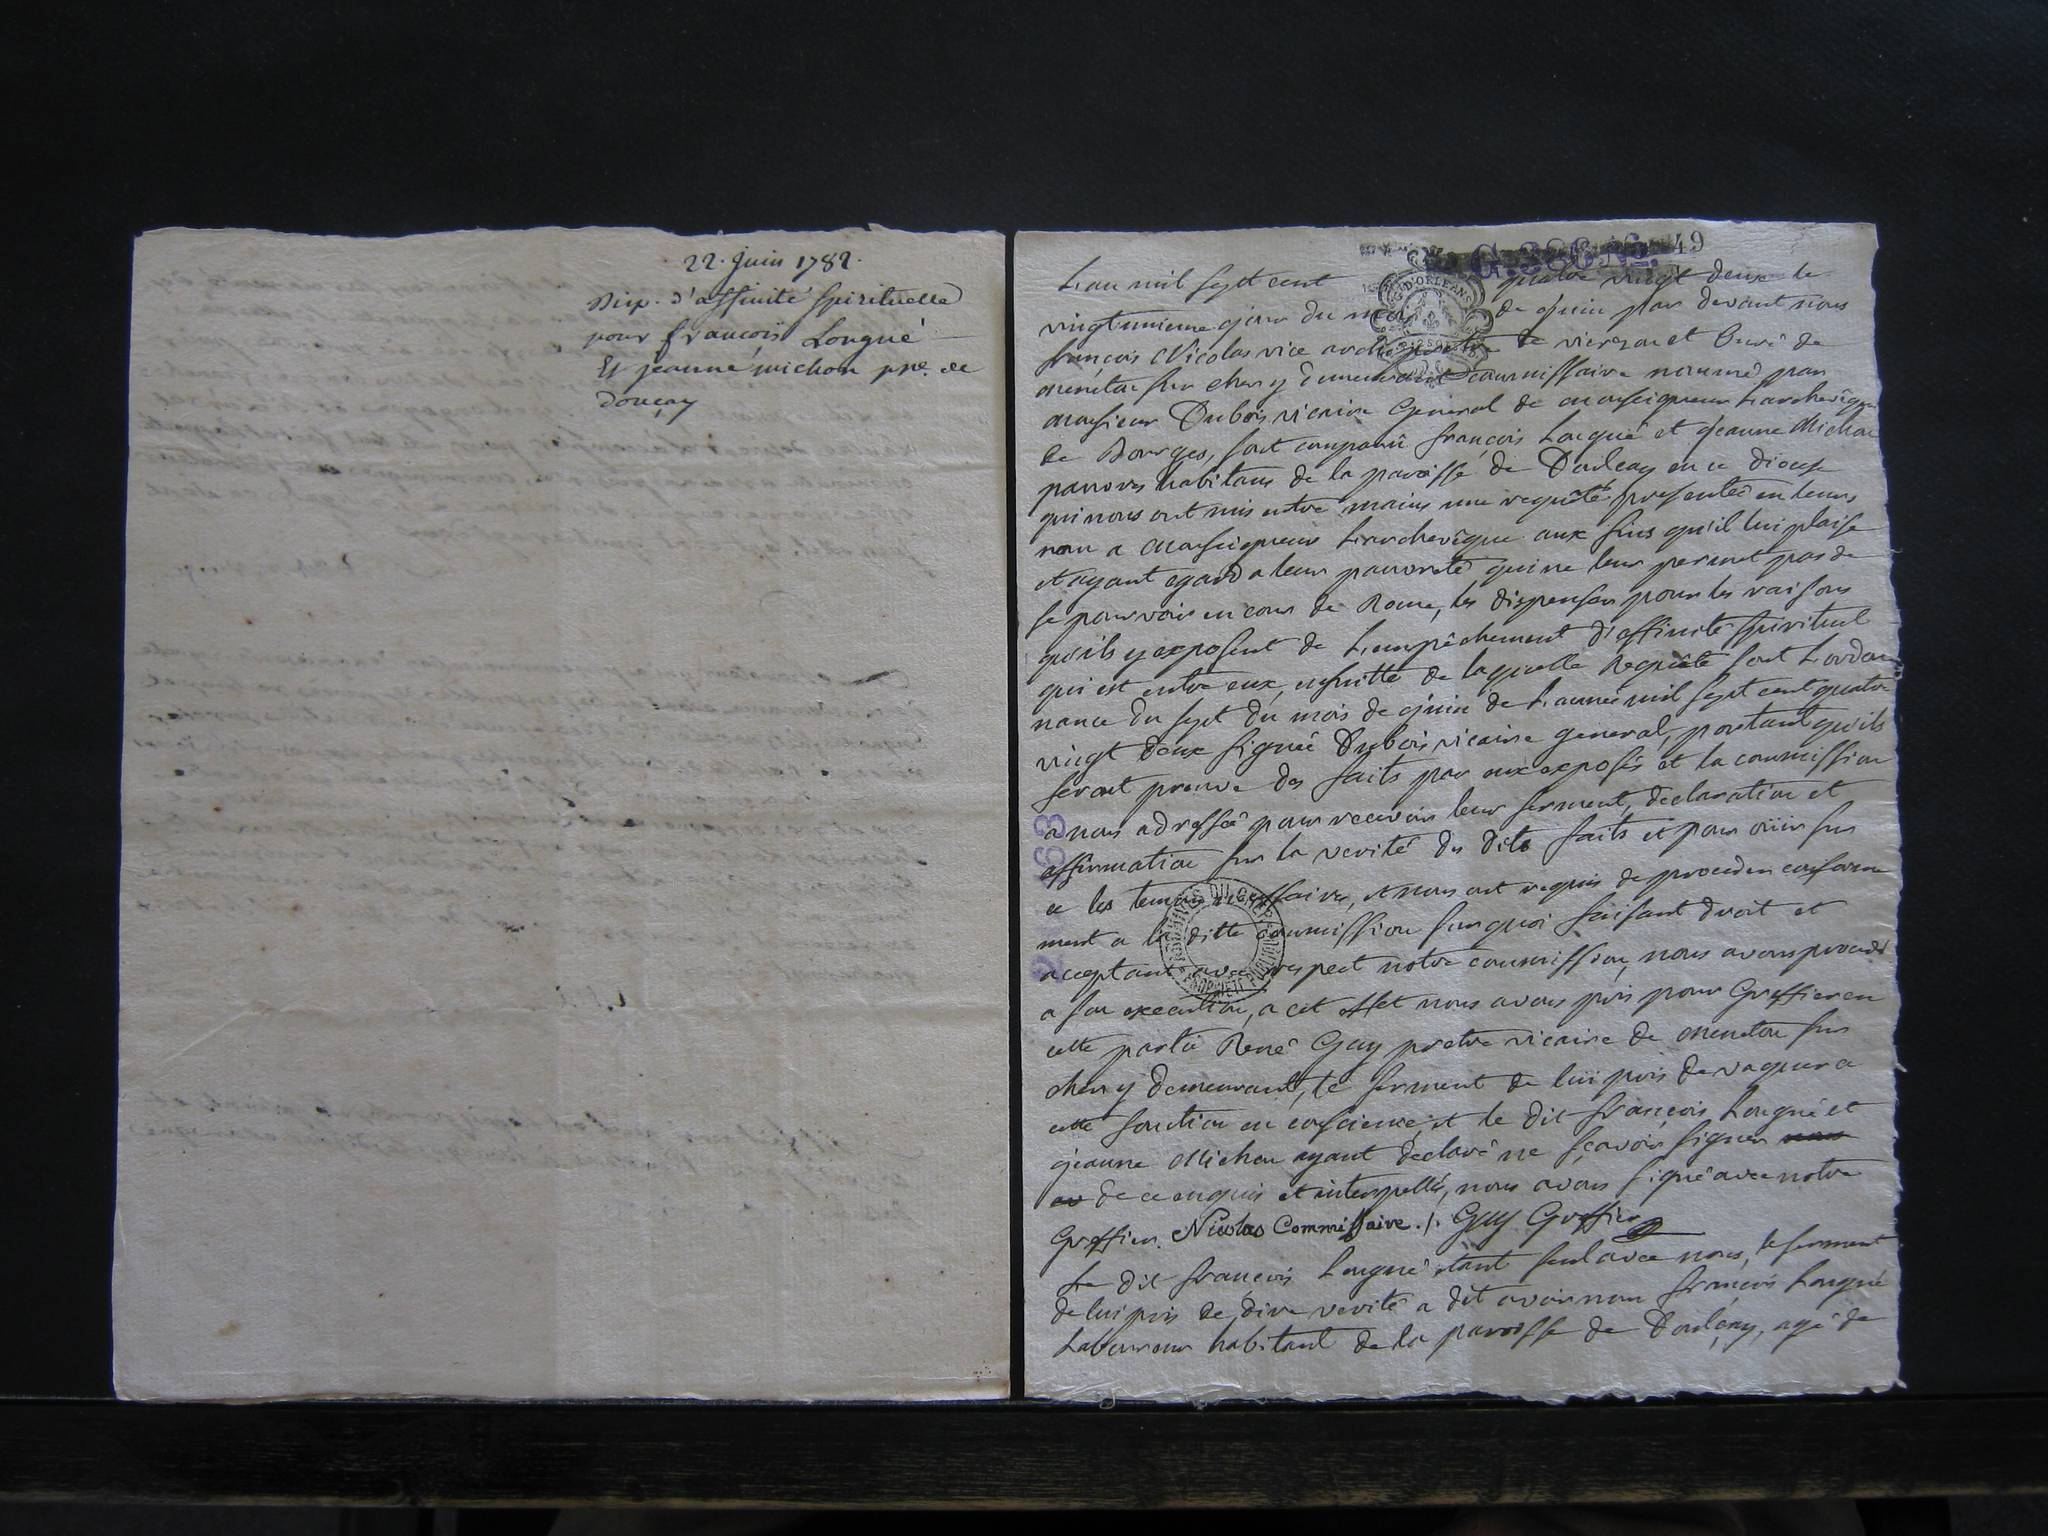 22. juin 1782.
Disp. d'affinité spirituelle
pour françois Longué
Et jeanne michou psse. de
Douçay
49
L'an mil sept cent quatre vingt deux le
vingt unieme jour du mois de juin par devant nous
françois Nicolas vice archiprestre de vierzon et Curé de
menetou sur cher y demeurant commissaire nommé par
monsieur Dubois vicaire General de monseigneur L'archevêque
de Bourges, sont comparu françois Longué et jeanne Michou
pauvres habitans de la paroisse de Doulçay en ce diocese
qui nous ont mis entre mains une requête presentée en leurs
nom a monseigneur L'archevêque aux fins qu'il lui plaise
et ayant egard a leur pauvreté qui ne leur permet pas de
se pourvoir en cour de Rome, les dispenser pour les raisons
qu'ils y exposent de L'empêchement d'affinité spirituel
qui est entre eux, ensuitte de laquelle Requête sont L'ordon
nance du sept du mois de juin de L'année mil sept cent quatre
vingt deux signée Dubois vicaire general, portant qu'ils
feront preuve des faits par eux exposés et la commission
a nous adressée pour recevoir leur serment, declaration et
affirmation sur la verité des dits faits et pour oüir sur
ce les temoins necessaires, et nous ont requis de proceder conforme
ment a la ditte commission surquoi faisant droit et
acceptant avec respect notre commission, nous avons procedé
a son execution, a cet effet nous avons pris pour Greffier en
cette partie René Gay pretre vicaire de menetou sur
cher y demeurant, le serment de lui pris de vaquer a
cette fonction en conscience, et le dit françois Longué et
jeanne Michou ayant declaré ne sçavoir signer nous
av de ce enquis et interpellés, nous avons signé avec notre
Greffier. Nicolas Commissaire ./. Gay Greffier
Le dit françois Longué etant seul avec nous, le serment
de lui pris de dire verité a dit avoir nom françois Longué
Laboureur habitant de la paroisse de Doulçay, agé de